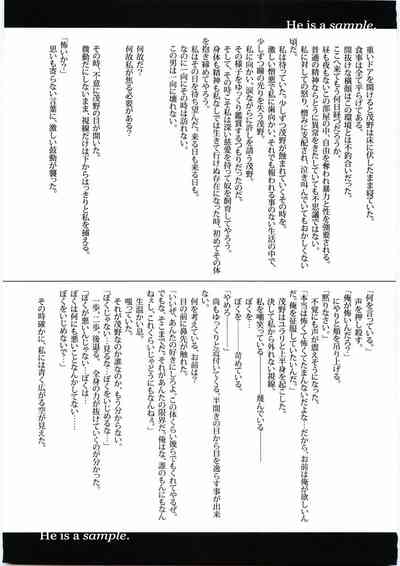 He is a sample.
重いドアを開けると茂野は床に伏したまま寝ていた。
食事は全て平らげてある。
間抜けな横顔はこの環境とは不釣合いだった。
ここへ来てもう何日経つだろうか。
昼も夜もないこの部屋の中で、自由を奪われ暴力と性を強要される。
普通の精神ならとうに異常をきたしていても不思議ではない。
私に対しての怒り、憎みに支配され、泣き叫んでいてもおかしくない
頃だ。
私は待っていた。少しずつ茂野が蝕まれていくその時を。
激しい憎悪で私に歯向かい、それでも報われる事のない生活の中で、
少しずつ瞳の光りを失う茂野。
私に向かい、涙ながらに許しを請う茂野。
その様をゆっくり鑑賞するつもりだったのだ。
そして、その時こそ私は深い慈愛を持って奴を飼育してやろう。
身体も精神も私なしでは生きて行けぬ存在になった時、初めてその体
を抱き締めてやろう。
私はその日を待ち望んだ。来る日も来る日も。
なのに一向にその時は訪れない。
この男は一向に壊れない。
何故だ?
何故私が焦る必要がある?
その時、不意に茂野の目が開いた。
微動だにしないまま、視線だけは下からはっきりと私を捕える。
「怖いか?」
思いも寄らない言葉に、激しい鼓動が襲った。
「何を言っている。」
声を押し殺す。
「俺が怖いんだろう?」
にやりと頬を吊り上げる。
「黙りなさい。」
不覚にも声が震えそうになった。
「本当は怖くて怖くてたまんないだよな…だから、お前は俺が欲しいん
だ。俺を征服していたいんだ。」
茂野はユラリと上半身を起こした。
決して私から外れない視線。
私を嘲笑っている────蔑んでいる────
ぼくを────
ぼくを────苛めている。
「やめろ────」
尚もゆっくりと近付いてくる、半開きの目から目を逸らす事が出来
ない。
何を考えている、お前は?
目の前に鼻先が触れた。
「いいぜ、あんたの好きにしろよ。この体くらい幾らでもくれてやるぜ。
でもな、そこまでだ。それがあんたの限界だ。俺はな、誰のもんにもなん
ねぇし、これぐらいじゃどうにもなんねぇ。」
生温かい息。
嗤っていた。
それが茂野なのか誰なのか、もう分からない。
「ぼくじゃない…見るな…ぼくをいじめるな…」
一歩、二歩、後退る。全身の力が抜けていくのが分かった。
「ぼくが悪いんじゃない…ぼくは…
ぼくは何にも悪いことなんかしてない…
ぼくをいじめないで…」
その時確かに、私には青く広がる空が見えた。
He is a sample.